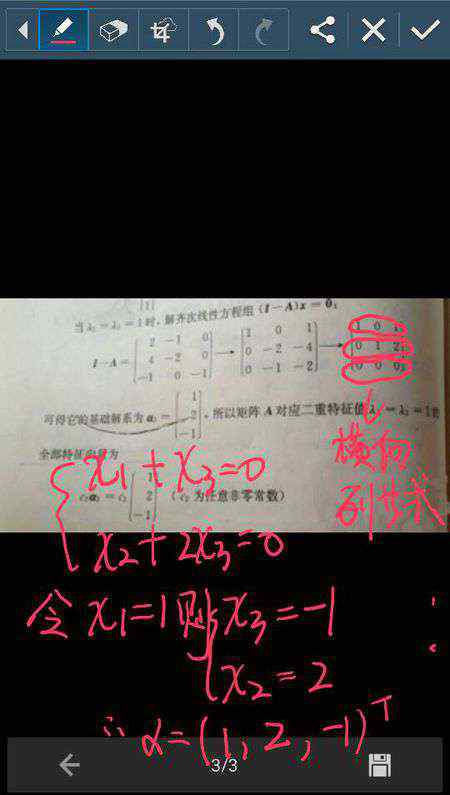 当λ₂=λ₃=1时,解齐次线性方程组(I-A)x=0,
I-A= [2 -1 0] → [1 0 1] → [1 0 1]
[4 -2 0] [0 -2 -4] [0 1 2]
[-1 0 -1] [0 -1 -2] [0 0 0]
可得它的基础解系为α₂= [1 2 -1] ,所以矩阵A对应二重特征值λ₂=λ₃=1的
全部特征向量为
c₂α₂=c₂ [1 2 -1] (c₂为任意非零常数)
横向
列方式
x1+x3=0
x2+2x3=0
令x1=1则x3=-1
x2=2
∴α=(1,2,-1)T
3/3